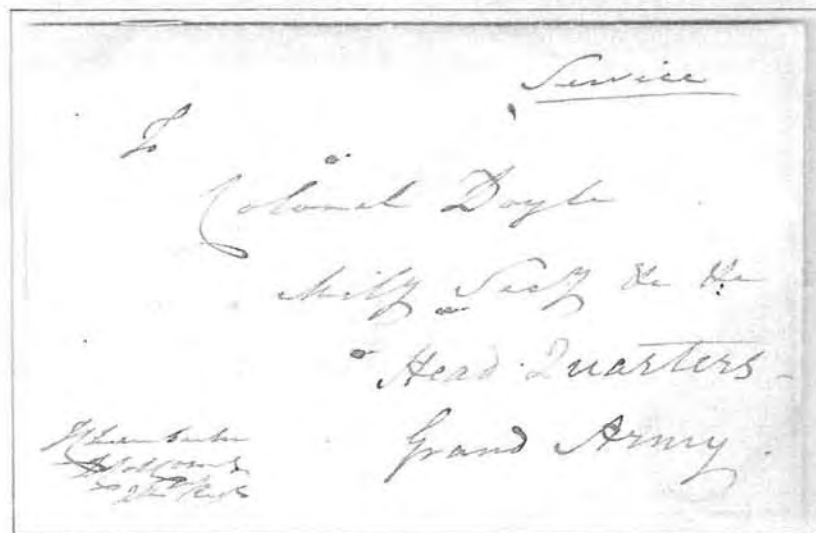 Service
To
Colonel Doyle
Mily Secy &c &c
Head Quarters
Grand Army